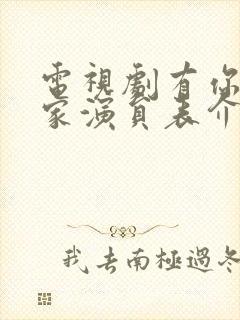 電視劇有你
家演員表介
我去南極過冬